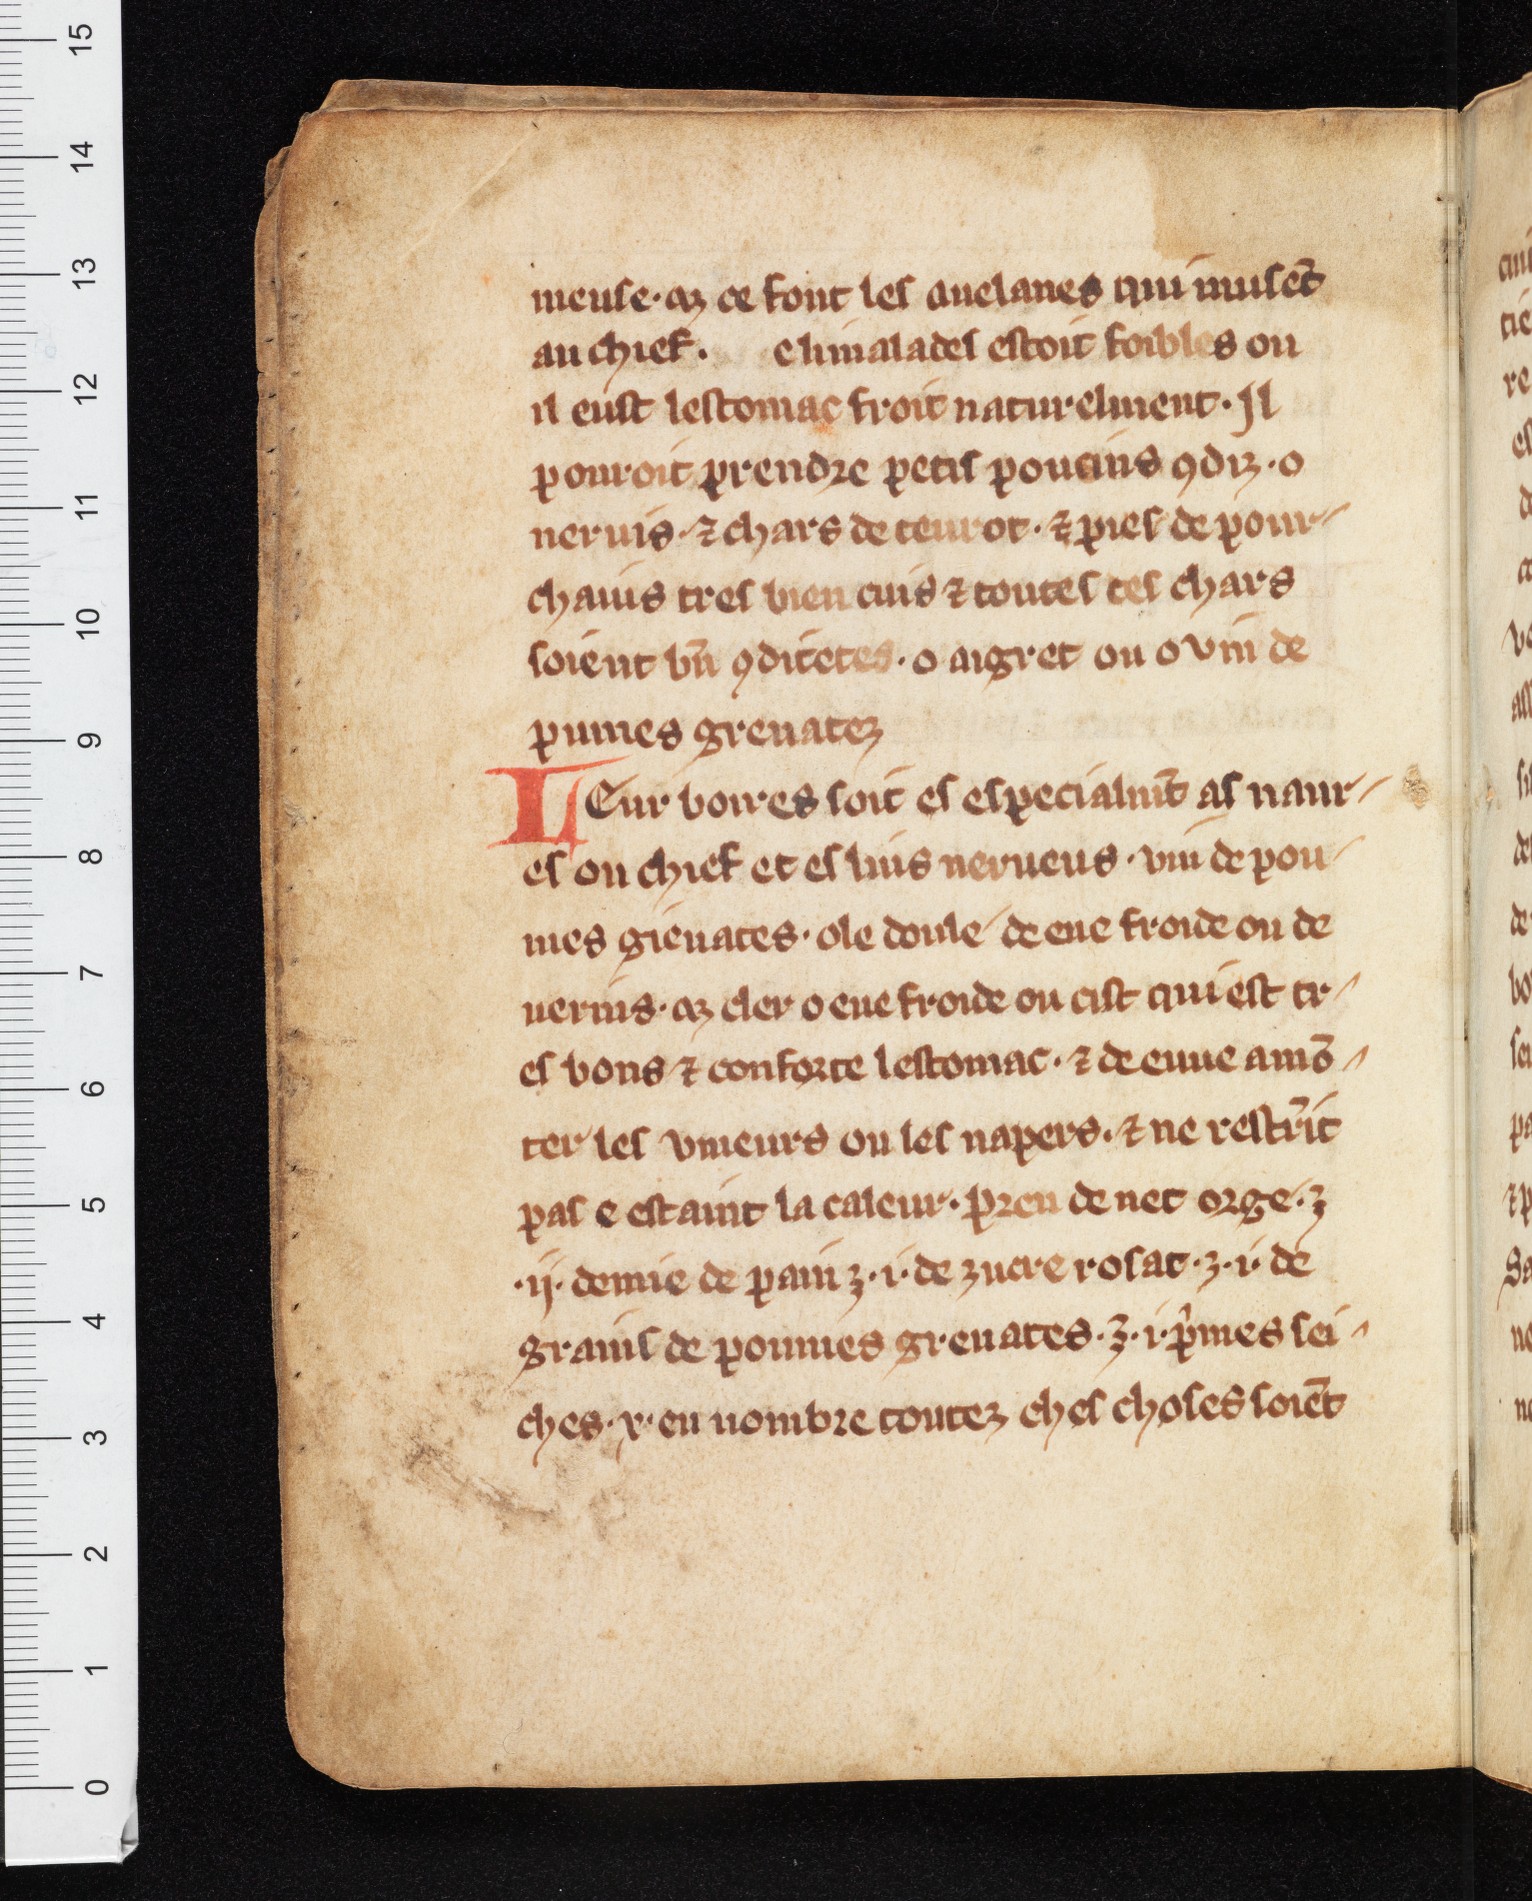 meuse · aꝫ ce sont les auelanes qui nuisēt
au chief . e li malades estoit foibles ou
il eust lestomac froit naturelment · Il
pouroit prendre petis poucins ꝯdiꝫ · o
neruis · ⁊ chars de teurot · ⁊ pies de pour
chaius tres bien cuis ⁊ toutes ces chars
soient bn̄ ꝯditetes · o aigret ou o vin de
pumes grenateꝫ
LEur boires soit es especialmt̄ as naur
es ou chief et es lius nerueus · vin de pou
mes grenates · o le doule de eue froide ou de
uernis · aꝫ cler o eue froide ou cist qui est tr
es bons ⁊ conforte lestomac · ⁊ de euue amō
ter les vmeurs ou les napers · ⁊ ne restrīt
pas e estaint la caleur · pren de net orge · ℥
· ij · demie de pain ℥ · i · de zucre rosat · ℥ · i · de
grains de poumes grenates · ℥ · i · pͥmes sei
ches · x · en nombre touteꝫ ches choses soiēt
15
14
13
12
11
10
9
8
7
6
5
4
3
2
1
0